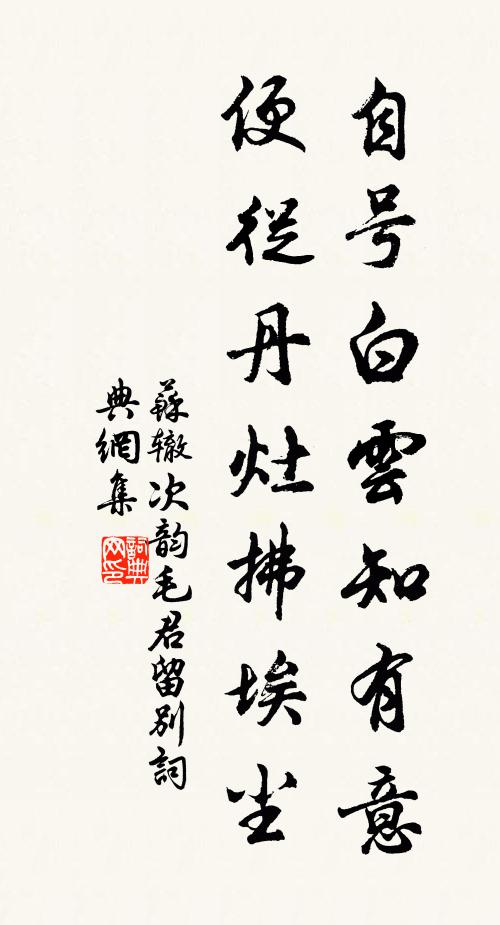 自号白雲知有意
便從丹灶拂埃尘
蘇辙次韵毛君留别詞
典網集
詞典
网印